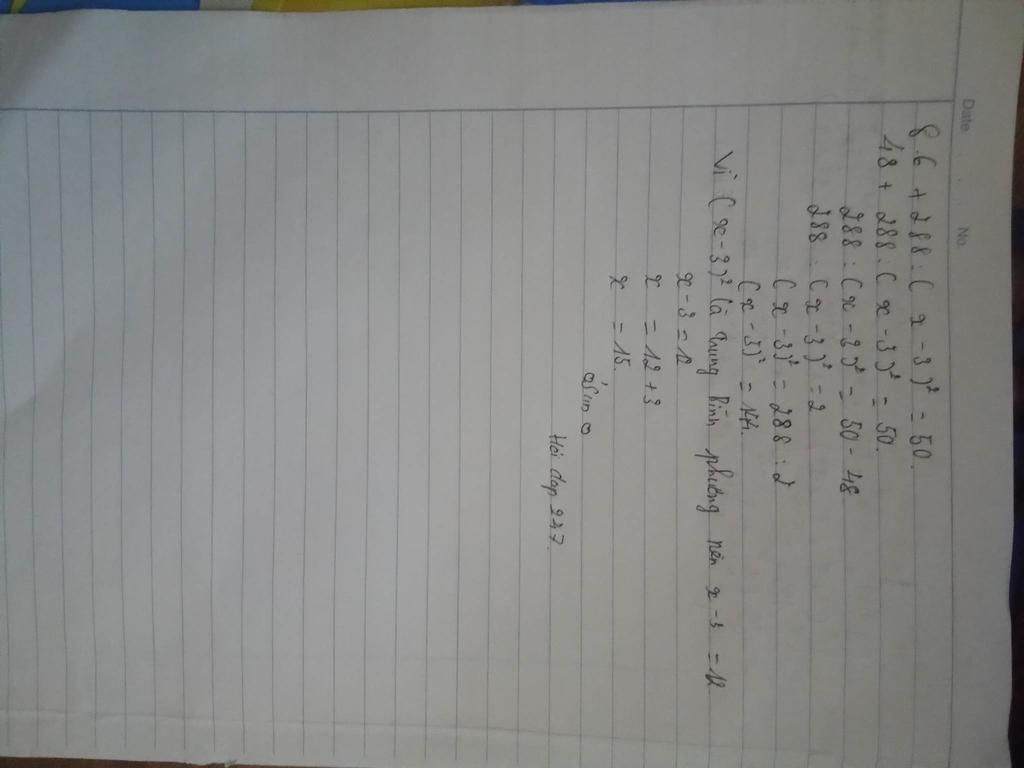 Date
No.
8.6 + 288 : ( x - 3 )² = 50.
48 + 288 : ( x - 3 )² = 50.
288 : ( x - 3 )² = 50 - 48
288 : ( x - 3 )² = 2
( x - 3 )² = 288 : 2
( x - 3 )² = 144.
Vì ( x - 3 )² là trung bình phương nên x - 3 = 12
x - 3 = 12
x = 12 + 3
x = 15.
Hỏi đap 247.